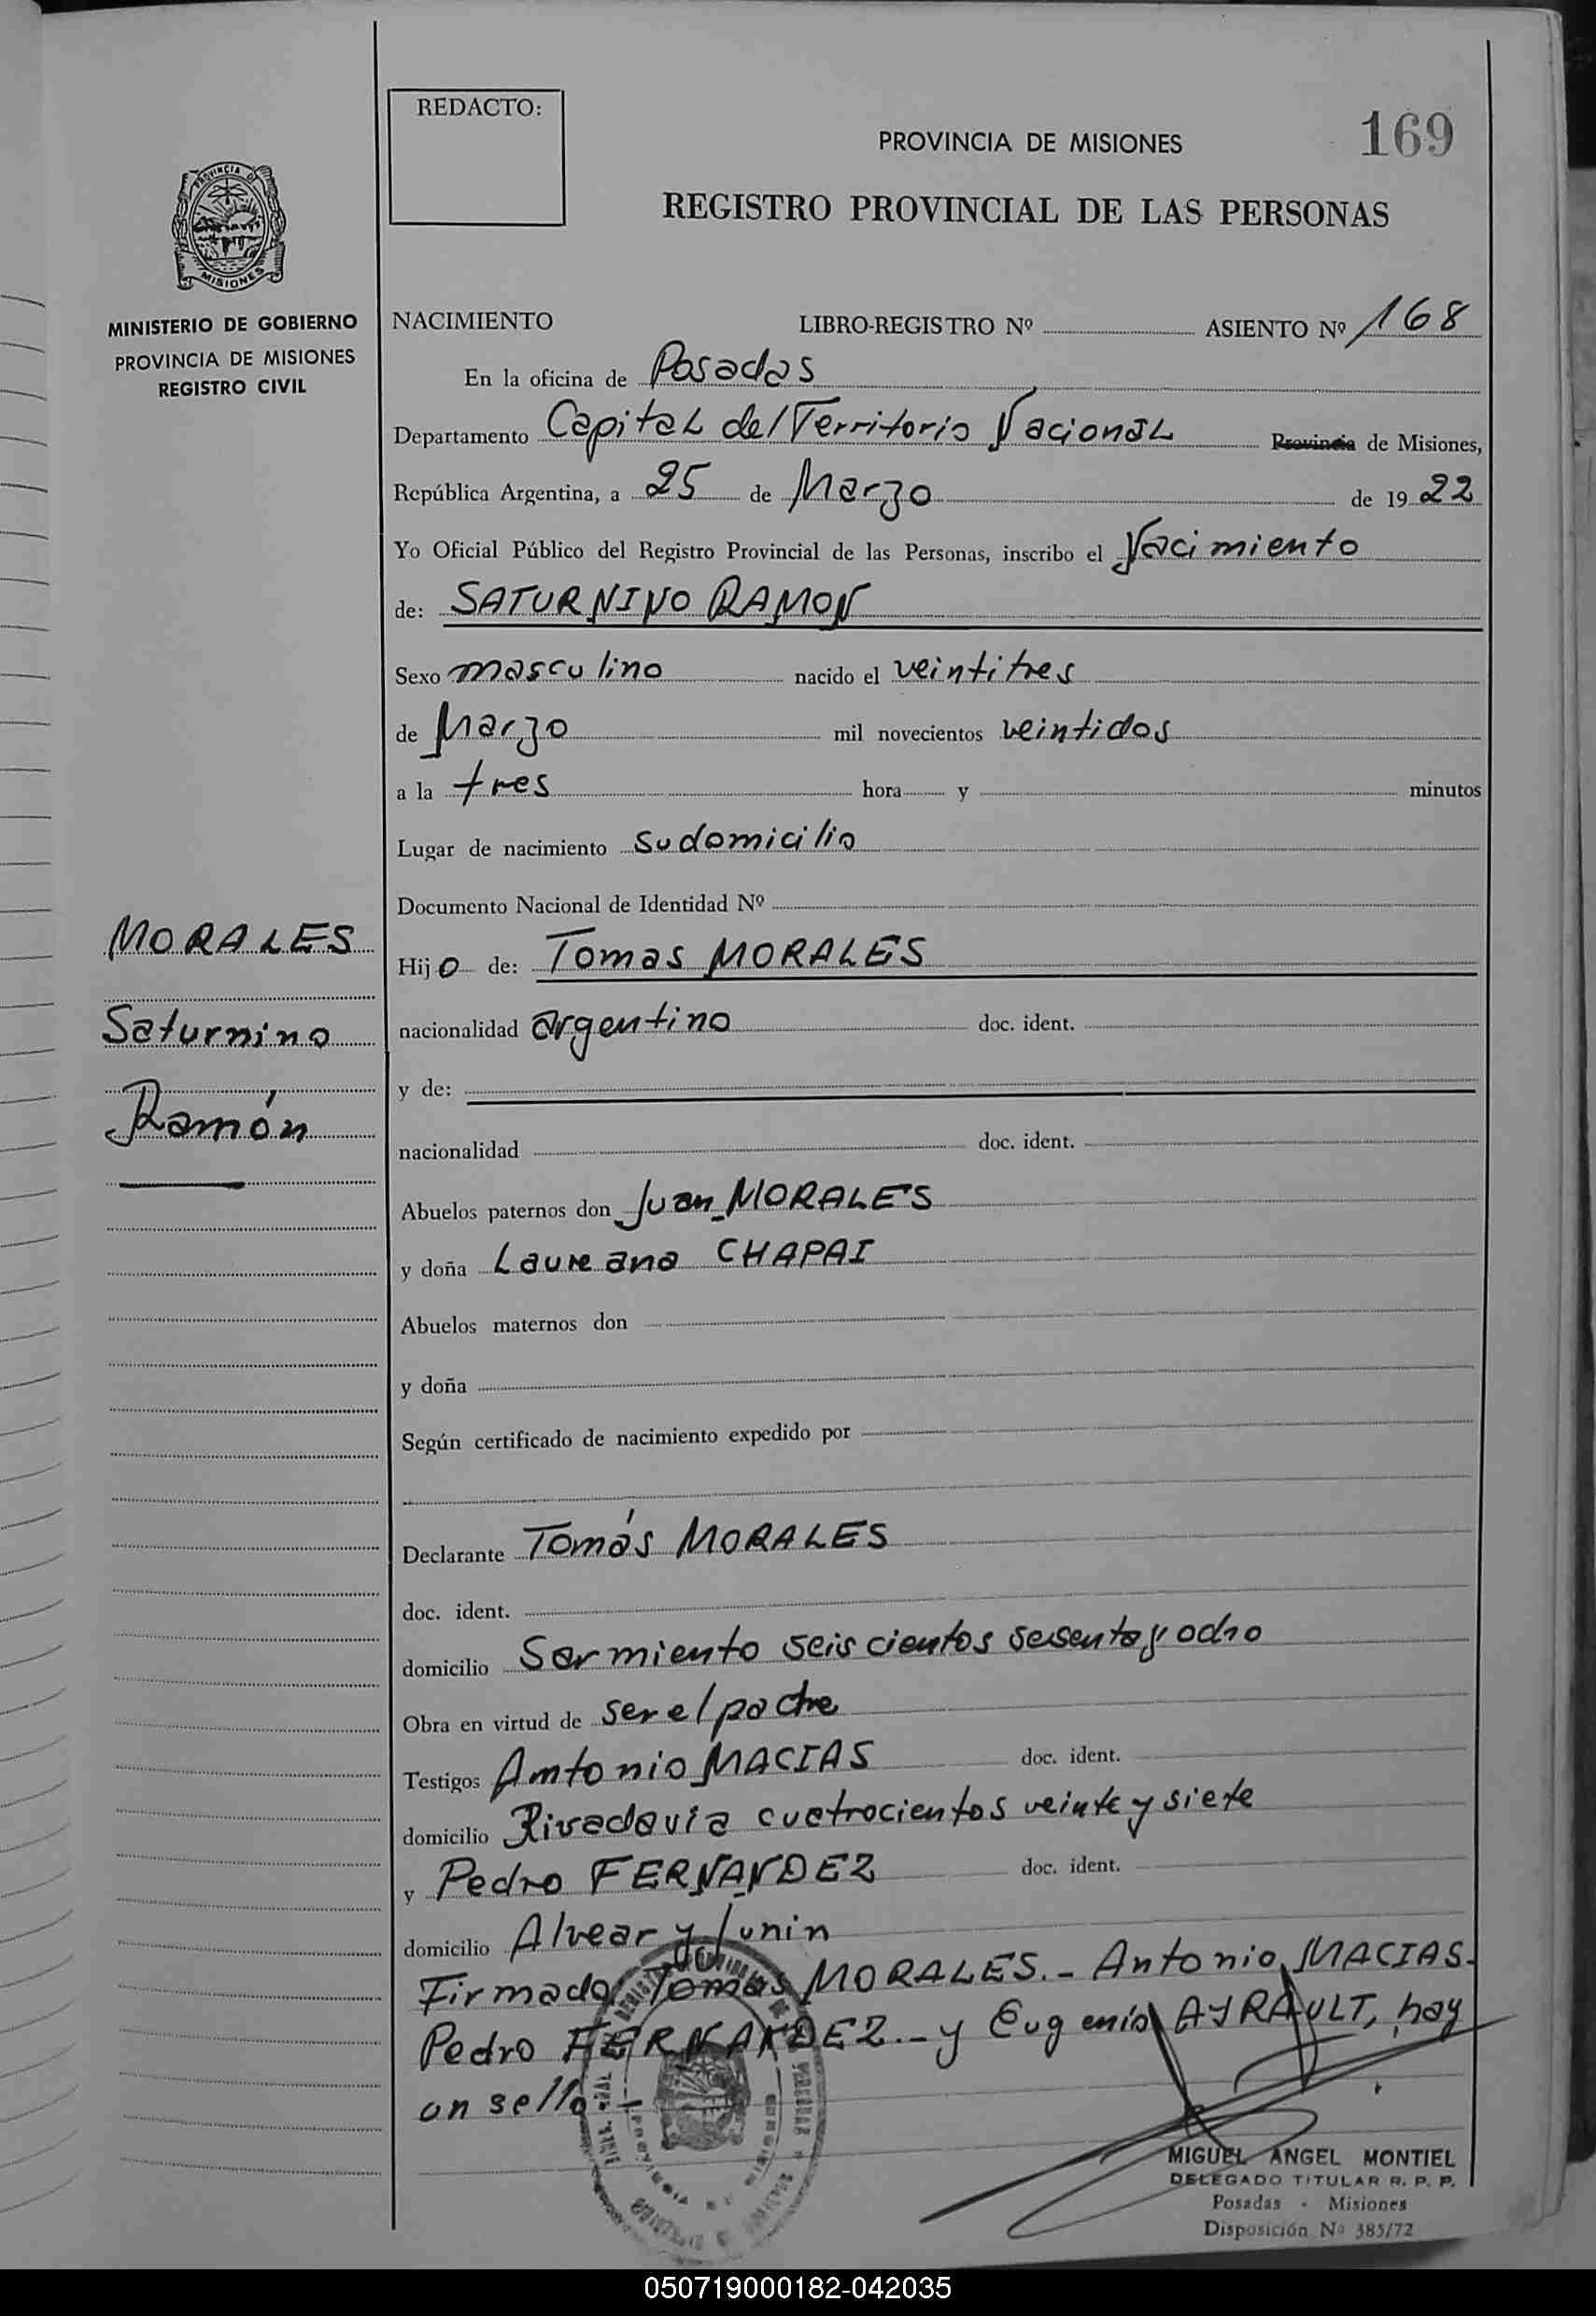 REDACTO:
169
PROVINCIA DE MISIONES
REGISTRO PROVINCIAL DE LAS PERSONAS
PROVINCIA DE
MISIONES
MINISTERIO DE GOBIERNO
PROVINCIA DE MISIONES
REGISTRO CIVIL
NACIMIENTO LIBRO-REGISTRO Nº ASIENTO Nº 168
En la oficina de Posadas
Departamento Capital del Territorio Nacional Provincia de Misiones,
República Argentina, a 25 de Marzo de 1922
Yo Oficial Público del Registro Provincial de las Personas, inscribo el Nacimiento
de: SATURNINO RAMON
Sexo masculino nacido el veintitres
de Marzo mil novecientos veintidos
a la tres hora y minutos
Lugar de nacimiento su domicilio
Documento Nacional de Identidad Nº
MORALES
Saturnino
Ramón
Hijo de: Tomas MORALES
nacionalidad argentino doc. ident.
y de:
nacionalidad doc. ident.
Abuelos paternos don Juan MORALES
y doña Laureana CHAPAI
Abuelos maternos don
y doña
Según certificado de nacimiento expedido por
Declarante Tomás MORALES
doc. ident.
domicilio Sarmiento seiscientos sesenta y ocho
Obra en virtud de ser el padre
Testigos Antonio MACIAS doc. ident.
domicilio Rivadavia cuatrocientos veinte y siete
y Pedro FERNANDEZ doc. ident.
domicilio Alvear y Junin
Firmado Tomas MORALES.- Antonio MACIAS.
Pedro FERNANDEZ.- y Eugenio AYRAULT, hay
un sello.-
MIGUEL ANGEL MONTIEL
DELEGADO TITULAR R. P. P.
Posadas - Misiones
Disposición Nº 385/72
050719000182-042035